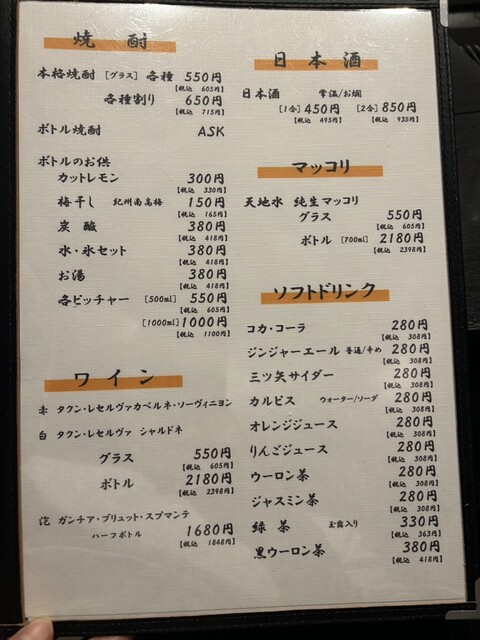 焼酎
本格焼酎 [グラス] 各種 550円
[税込 605円]
各種割り 650円
[税込 715円]
ボトル焼酎 ASK
ボトルのお供
カットレモン 300円
[税込 330円]
梅干し 紀州南高梅 150円
[税込 165円]
炭酸 380円
[税込 418円]
水・氷セット 380円
[税込 418円]
お湯 380円
[税込 418円]
各ピッチャー [500ml] 550円
[税込 605円]
[1000ml] 1000円
[税込 1100円]
ワイン
赤 タクン・レセルヴァカベルネ・ソーヴィニヨン
白 タクン・レセルヴァ シャルドネ
グラス 550円
[税込 605円]
ボトル 2180円
[税込 2398円]
泡 ガンチア・ブリュット・スプマンテ
ハーフボトル 1680円
[税込 1848円]
日本酒
日本酒 常温/お燗
[1合] 450円 [2合] 850円
[税込 495円] [税込 935円]
マッコリ
天地水 純生マッコリ
グラス 550円
[税込 605円]
ボトル [700ml] 2180円
[税込 2398円]
ソフトドリンク
コカ・コーラ 280円
[税込 308円]
ジンジャーエール 普通/辛め 280円
[税込 308円]
三ツ矢サイダー 280円
[税込 308円]
カルピス ウォーター/ソーダ 280円
[税込 308円]
オレンジジュース 280円
[税込 308円]
りんごジュース 280円
[税込 308円]
ウーロン茶 280円
[税込 308円]
ジャスミン茶 280円
[税込 308円]
緑茶 玉露入り 330円
[税込 363円]
黒ウーロン茶 380円
[税込 418円]